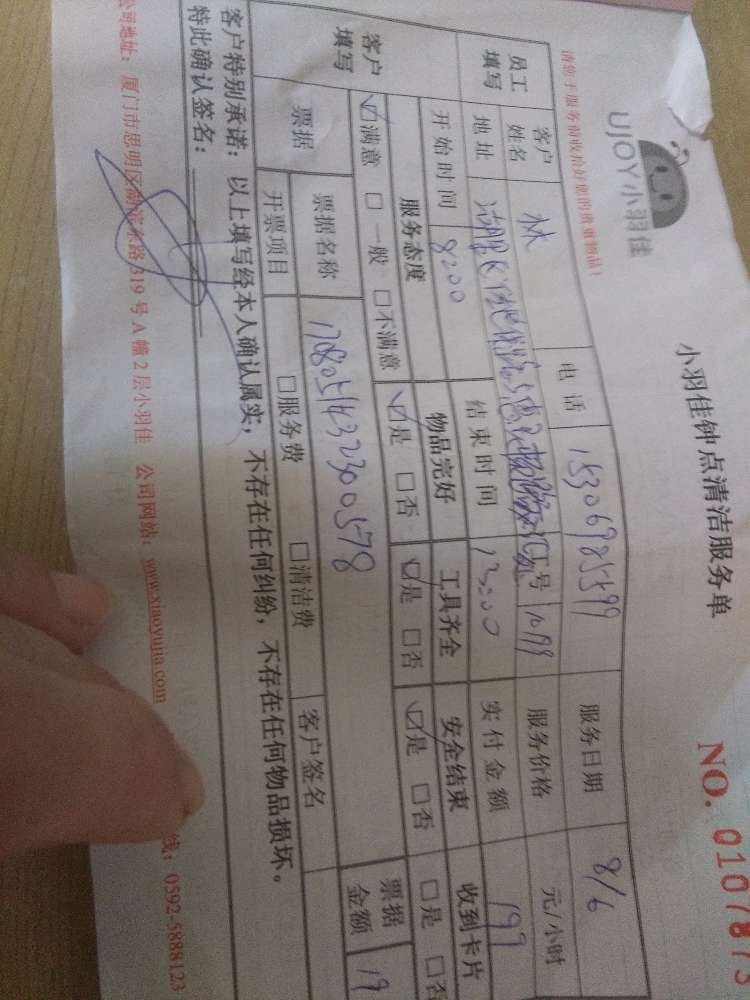 UJOY小羽佳
小羽佳钟点清洁服务单
NO. 0107873
请您于服务前收拾好您的贵重物品!
员工填写 客户姓名 林 电话 15306985599 服务日期 8/6
工号 1099 服务价格 元/小时
地址
开始时间 8:00 结束时间 13:00 实付金额 199
客户填写 服务态度 物品完好 工具齐全 安全结束 收到卡片
☑满意 □一般 □不满意 ☑是 □否 ☑是 □否 ☑是 □否 □是 □否
票据 票据名称 178051432300578 票据金额 19
开票项目 □服务费 □清洁费 客户签名
客户特别承诺:以上填写经本人确认属实,不存在任何纠纷,不存在任何物品损坏。
特此确认签名:
公司地址:厦门市思明区湖滨东路319号A幢2层小羽佳 公司网站:www.xiaoyujia.com
线:0592-5888123